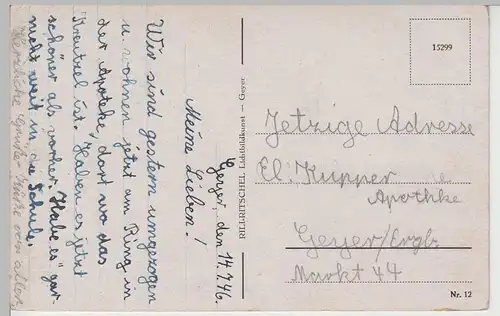 Geyer, den 14.7.46.
Meine Lieben!
Wir sind gestern umgezogen
u. wohnen jetzt am Ring in
der Apotheke, dort wo das
Kreutzel ist. Haben es jetzt
schöner als vorher. Habe es gar
nicht weit in die Schule.
Herzliche Grüße von allen
RILLRITSCHEL Lichtbildkunst — Geyer
15299
Jetzige Adresse
El: Kupper
Apotheke
Geyer/Erzgb
Markt 44
Nr. 12